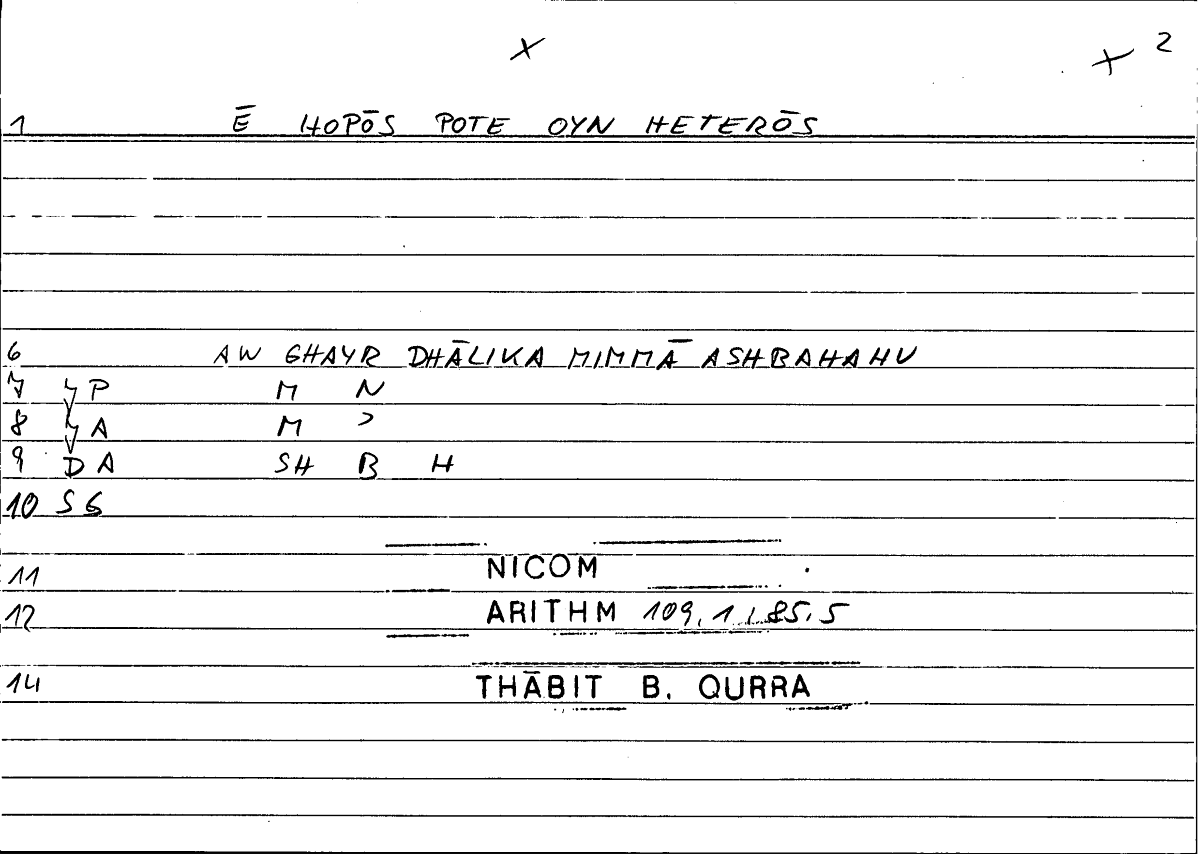 x + 2
1 Ē HOPŌS POTE OYN HETERŌS
6 AW GHAYR DHĀLIKA MIMMĀ ASHBAHAHU
7 P M N
8 A M ʾ
9 D A SH B H
10 S G
11 NICOM
12 ARITHM 109,1 / 85,5
14 THĀBIT B. QURRA